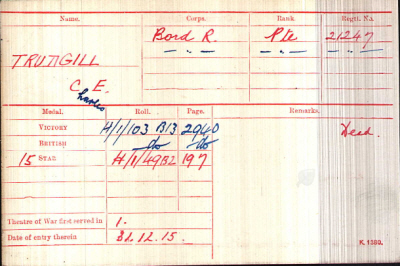 Name. Corps. Rank. Regtl. No.
Bord R. Pte 21247
TRUDGILL -"- -"- -"-
C. E.
Charles
Medal. Roll. Page. Remarks.
VICTORY H/1/103 B13 2940 Dead.
BRITISH do do
15 STAR H/1/49B2 197
Theatre of War first served in 1.
Date of entry therein 31.12.15.
K. 1380.